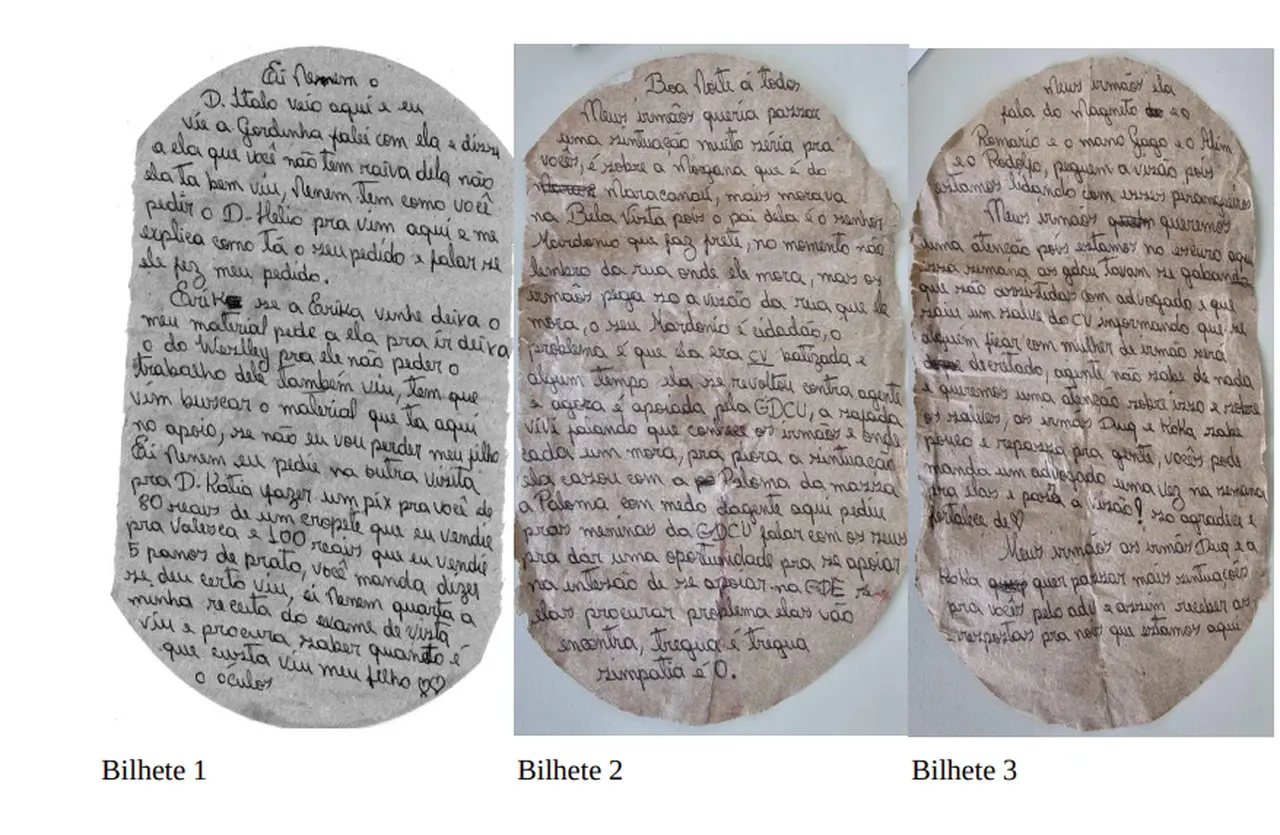 Ei Nenem o
D. Italo veio aqui e eu
vie a Gordinha falei com ela e dizza
a ela que você não tem raiva dela não
ela ta bem viu, Nenem tem como você
pedir o D-Helio pra vim aqui e me
explica como tá o seu pedido e falar se
ele fez meu pedido.
Erika se a Erika vinhe deixa o
meu material pede a ela pra ir deixa
o do Weslley pra ele não peder o
trabaslho dele também viu, tem que
vim buscar o material que ta aqui
no apoio, se não eu vou perder meu filho
Ei Nenem eu pedie na outra visita
pra D. Katia fazer um pix pra você de
80 reais de um cropete que eu vendie
pra Valesca e 100 reais que eu vendie
5 panos de prato, você manda dizer
se deu certo viu, ei Nenem quarta a
minha receita do exame de vista
viu e procura saber quanto é
que custa viu meu filho ♡♡
o óculos
Boa Noite á todos
Meus irmãos queria passar
uma sintuação muito séria pra
vocês, é sobre a Morgana que é do
Maracanaú, mais morava
na Bela Vista pois o pai dela é o senhor
Mardonio que faz frete, no momento não
lembro da rua onde ele mora, mas os
irmãos pega so a visão da rua que ele
mora, o seu Mardonio é cidadão, o
problema é que ela era CV batizada e
algum tempo ela se revoltou contra agente
e agora é apoiada pela GDCU, a safada
vive falando que conhece os irmãos e onde
cada um mora, pra piora a sintuação
ela casou com a Paloma da massa
a Paloma com medo dagente aqui pediu
pras meninas da GDCU falar com os seus
pra dár uma oportunidade pra se apoiar
na intesão de se apoiar na GDE se
elas procurar problema elas vão
encontra, tregua é tregua
simpatia é 0.
Meus irmãos ela
fala do Magneto e o
Romario e o mano Gago e o Alim
e o Rodolfo, peguem a visão pois
estamos lidando com esses piranqueiros
Meus irmãos queremos
uma atencão pois estamos no escuro aqui
essa semana as gdcu tavam se gabando
que são assistidas com advogado e que
saiu um salve do CV informando que se
alguém ficar com mulher de irmão sera
decretado, agente não sabe de nada
e queremos uma atencão sobre isso e sobre
os salves, as irmãs Dug e KoKa sabe
pouco e repassa pra gente, vocês pode
manda um advogado uma vez na semana
pra elas e passa a visão! so agradece e
fortalece de ♡
Meus irmãos as irmãs Dug e a
KoKa quer passar mais sintuações
pra vocês pelo adv e assim receber as
respostas pra nois que estamos aqui
Bilhete 1
Bilhete 2
Bilhete 3